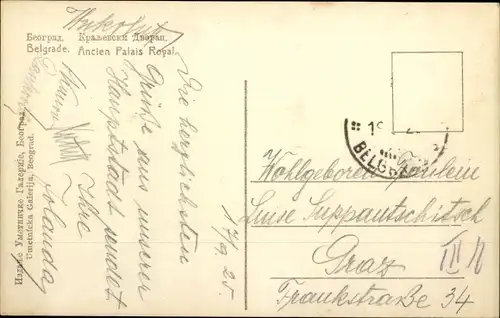 Београд. Краљевски Дворац.
Belgrade. Ancien Palais Royal.
Издање Уметничке Галерије, Београд.
Umetnička Galerija, Beograd.
Die herzlichsten
Grüße aus unserer
Hauptstadt sendet
Ihre
Jolanda
17/9 25.
BELG
Wohlgeboren Fräulein
Luise Suppantschitsch
Graz
III
Frankstraße 34